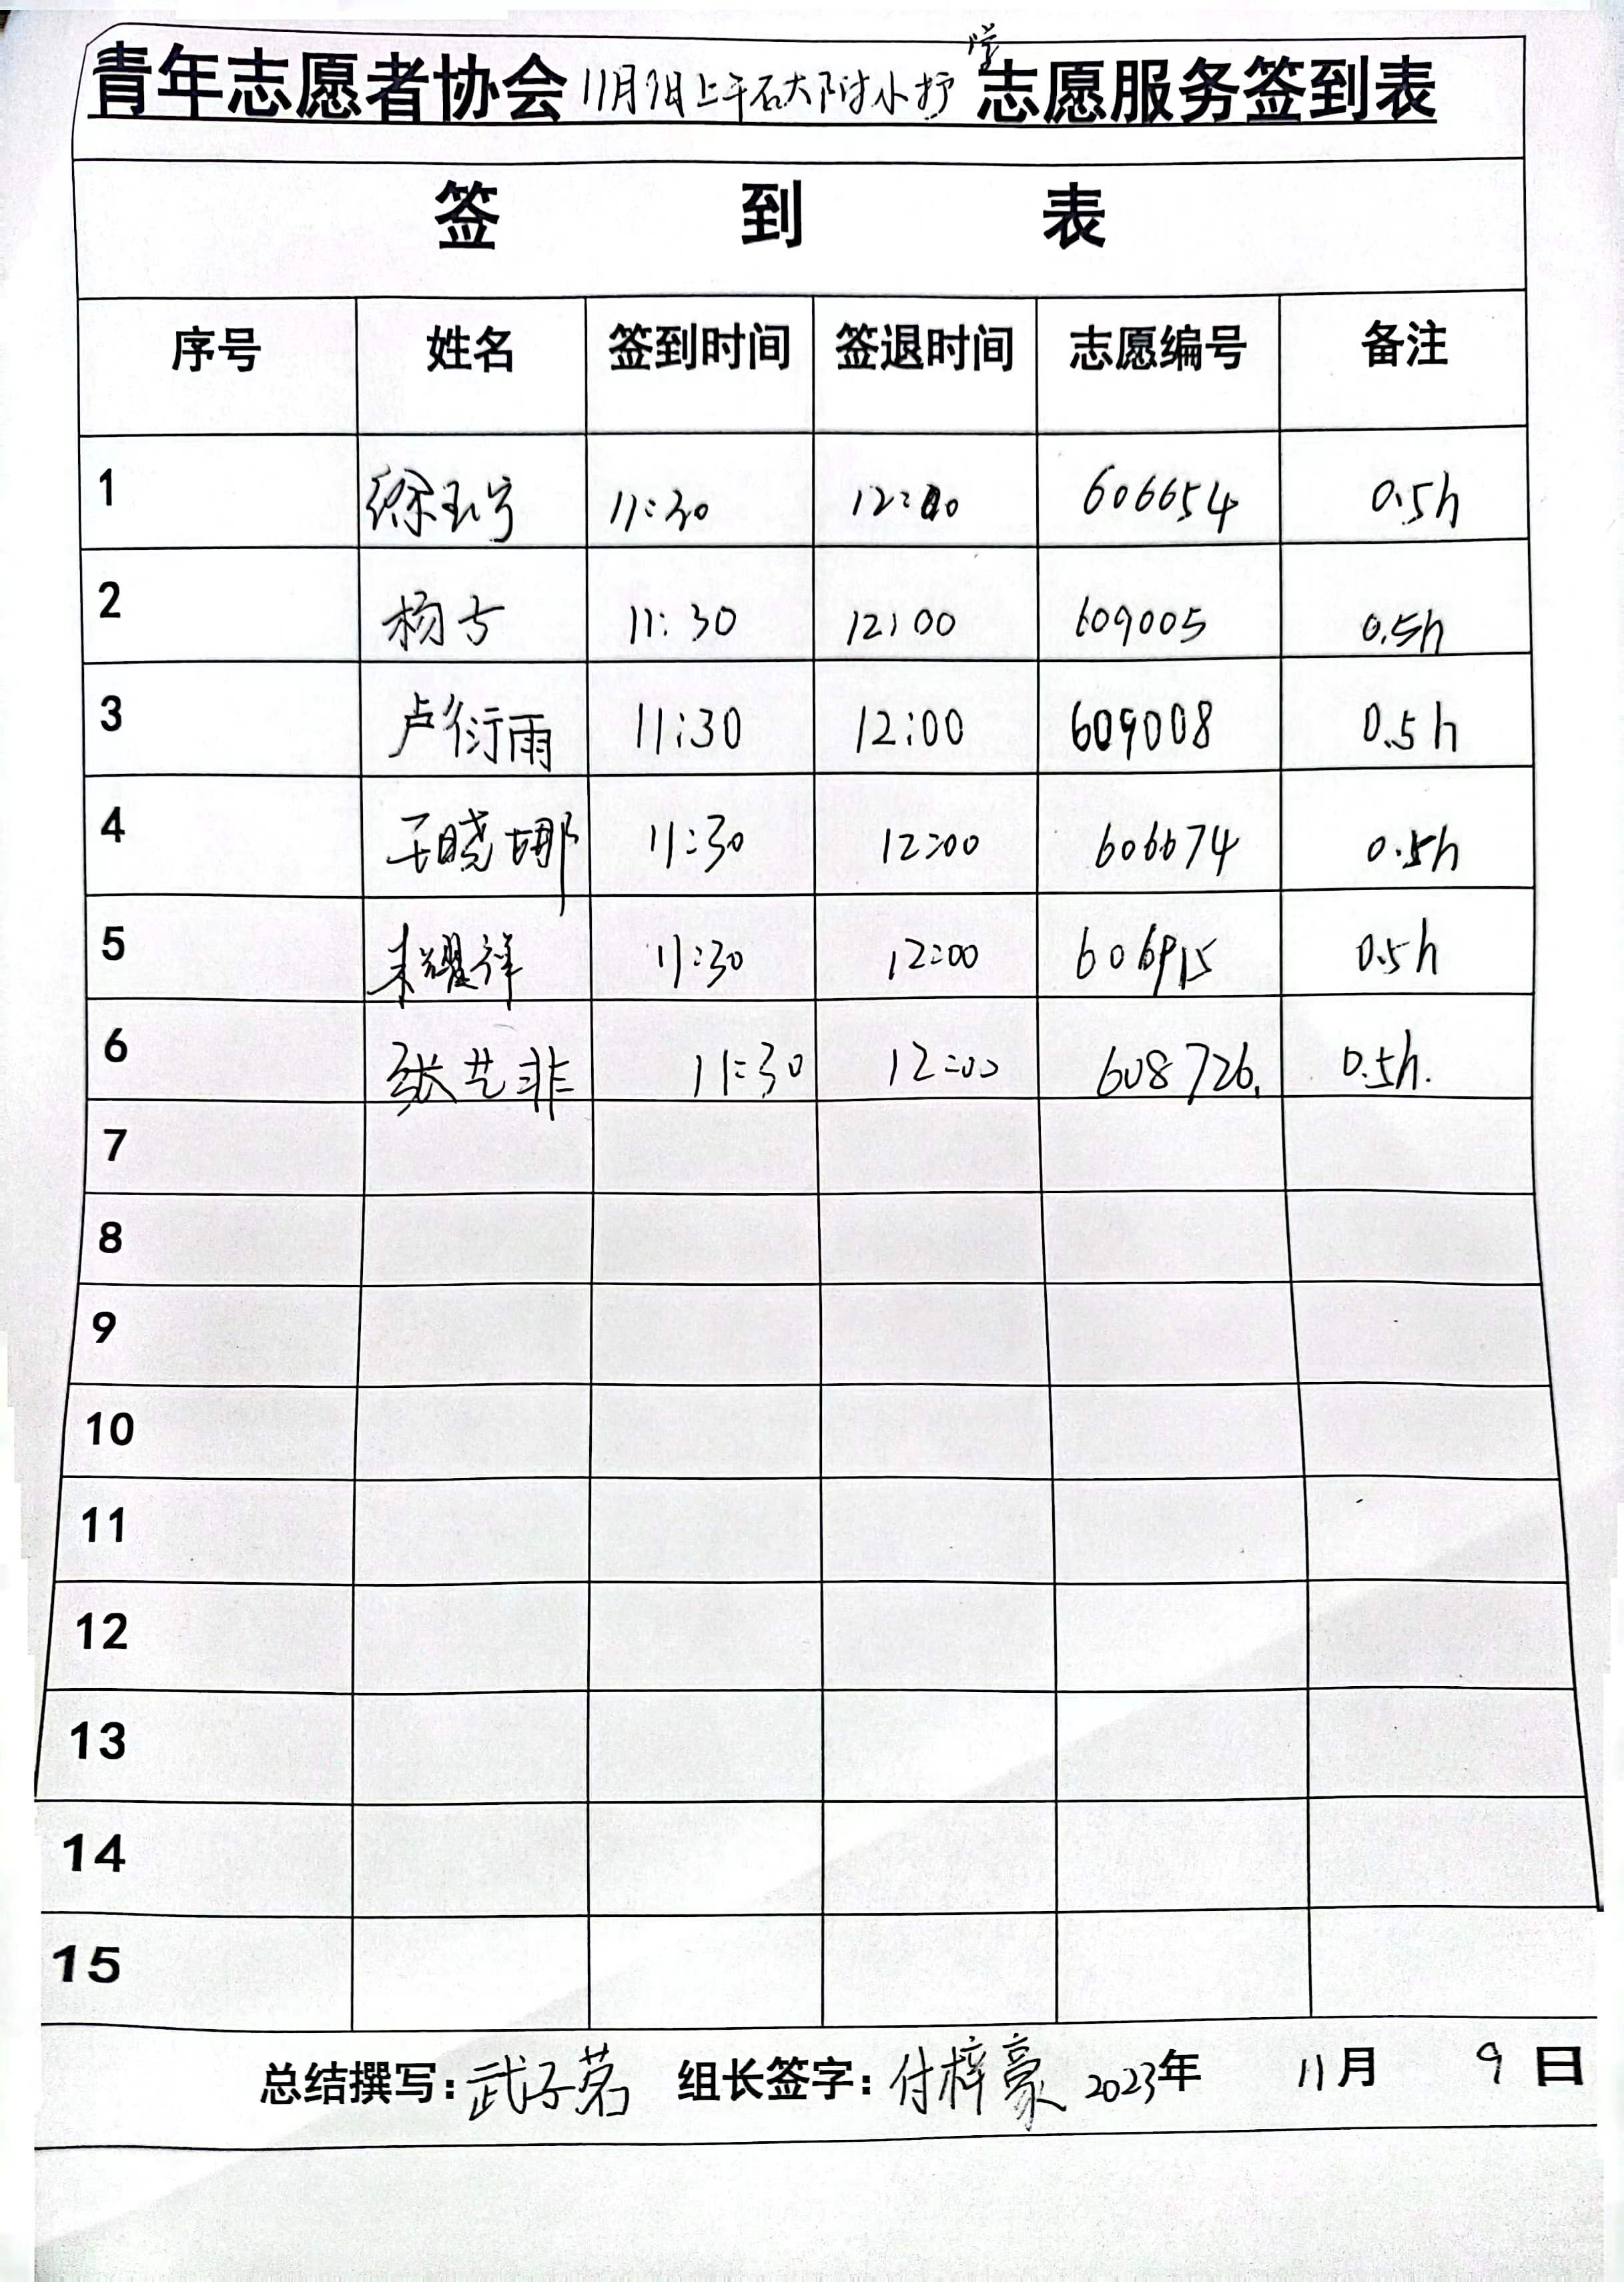 青年志愿者协会11月9日上午石大附小护学志愿服务签到表
签 到 表
序号 姓名 签到时间 签退时间 志愿编号 备注
1 徐玉宁 11:30 12:00 606654 0.5h
2 杨方 11:30 12:00 609005 0.5h
3 卢衍雨 11:30 12:00 609008 0.5h
4 王晓娜 11:30 12:00 606674 0.5h
5 朱耀祥 11:30 12:00 606915 0.5h
6 张艺非 11:30 12:00 608726. 0.5h.
7
8
9
10
11
12
13
14
15
总结撰写:武子茗 组长签字:付梓豪 2023年 11月 9日